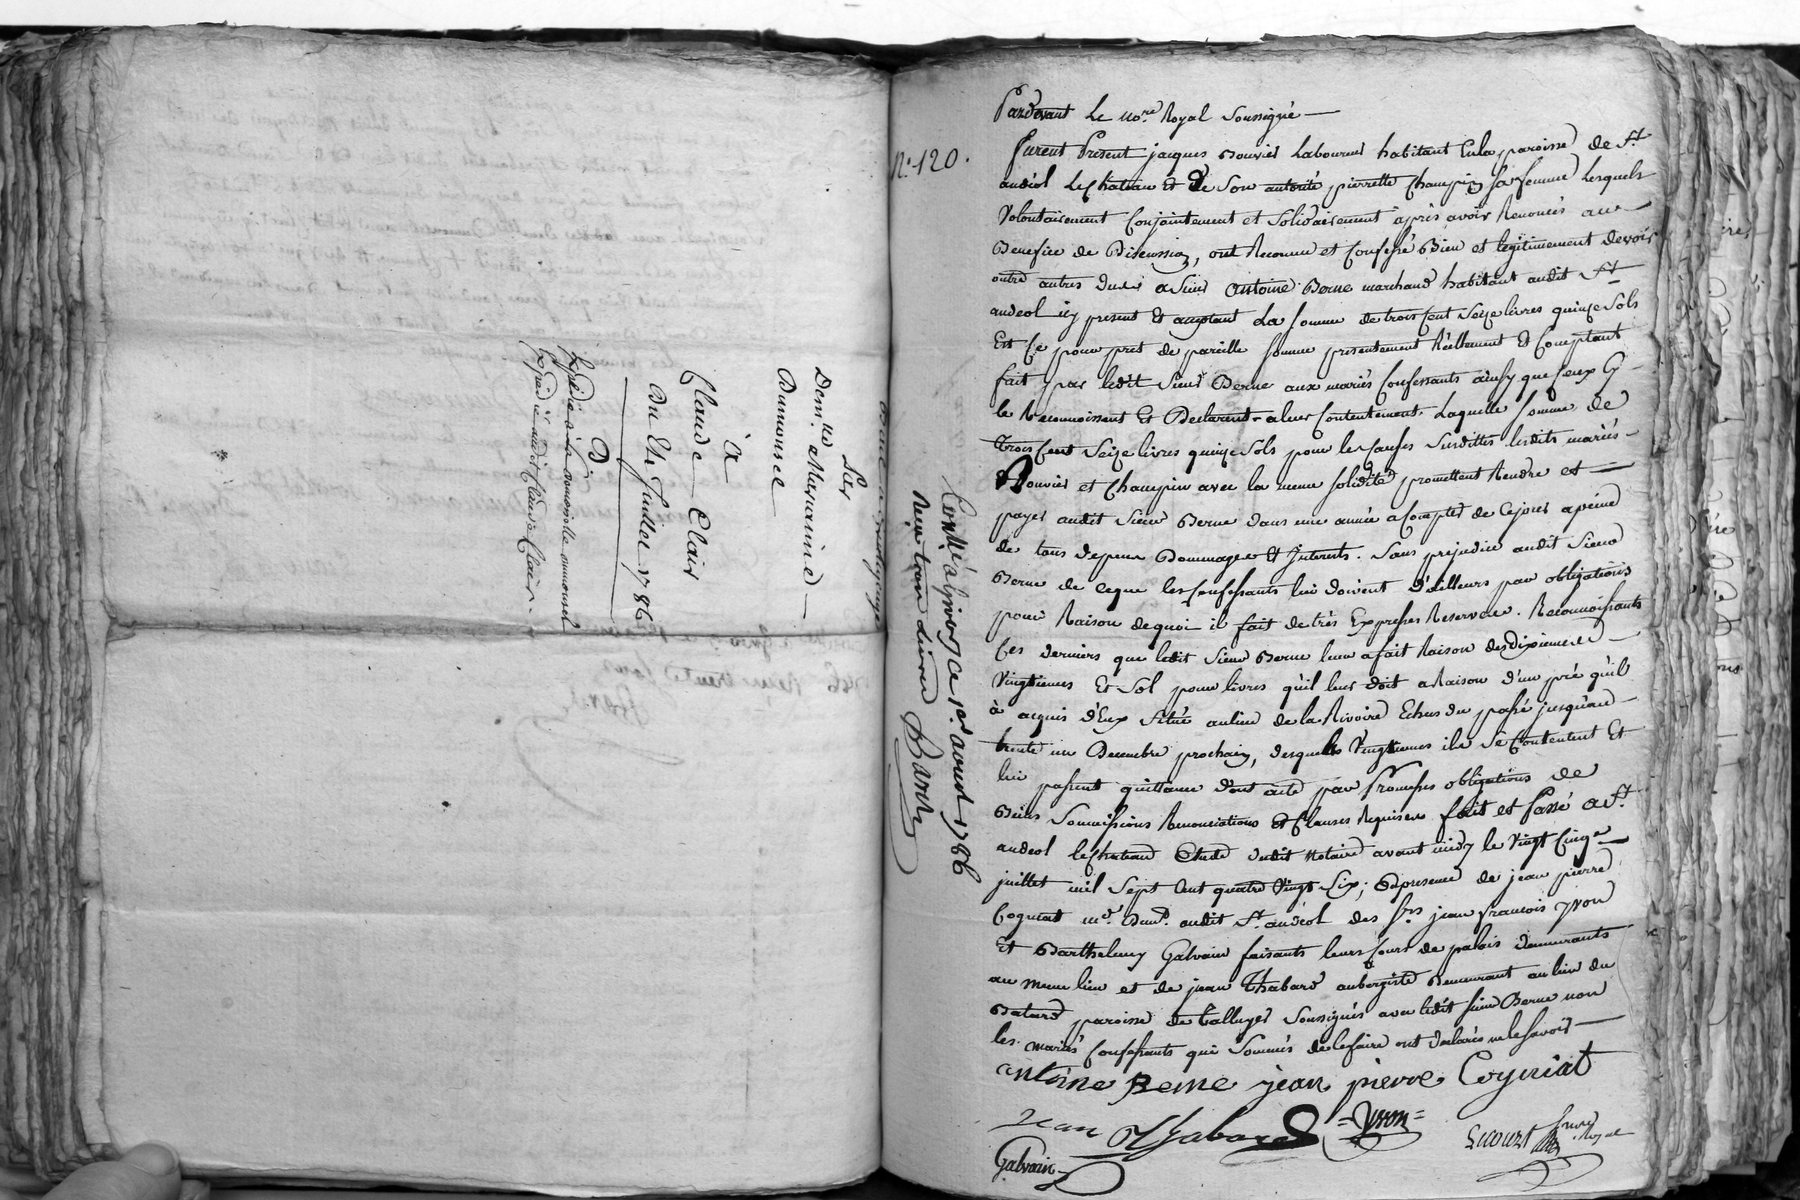 Par
Dem.lle Marianne
Dumoncel
à
Claude Clair
Du 24 juillet 1786
D
Expédié à La demoiselle dumoncel
Expédié audit Claude Clair.
N.° 120.
Controlé à givors ce 1er aoust 1786
Reçu trois livres Baroz
Pardevant Le no.re Royal Soussigné —
furent Present jacques Bouvier Laboureur habitant En la paroisse de St
andéol Le Chateau et de Son autorité pierrette Champin sa femme Lesquels
Volontairement Conjointement et Solidairement après avoir Renoncés au —
Benefice de Discussion, ont Reconnu et Confessé Bien et legitimement devoir
outre autres dues a Sieur Antoine Berne marchand habitant audit St
andeol icy present Et acceptant La somme de trois Cent Seize livres quinze Sols
Est Ce pour pret de pareille somme presentement Réellement Et Comptant
fait par ledit Sieur Berne aux mariés Confessants ainsy que Ceux Cy
le Reconnoissent Et Declarent a leur Contentement. Laquelle somme de
Trois Cent Seize livres quinze Sols pour les Causes Susdittes lesdits mariés —
Bouvier et Champin avec la meme solidité promettent Rendre et —
payer audit Sieur Berne dans une année a Compter de Ce jour a peine
de tous depens Dommages Et Interets. Sans prejudice audit Sieur
Berne de Ceque les Confessants lui doivent d'ailleurs par obligations
pour Raison de quoi il fait de très Expresses Reserves. Reconnoissants
Ces derniers que ledit Sieur Berne leur a fait Raison des Dixiemes
Vingtiemes Et Sol pour livres qu'il leur doit a Raison d'un pré qu'il
à acquis d'Eux Situé au lieu de la Rivoire Echus du passé jusqu'au —
trente un Decembre prochain, desquels Vingtiemes ils Se Contentent Et
lui passent quittance dont acte par Promesses obligations de
Biens Soumissions Renonciations Et Clauses Requises fait et Passé a St
andeol le Chateau Etude dudit Notaire avant midy le Vingt Cinq —
juillet mil Sept Cent quatre Vingt Six; En presence de jean pierre
Cogniat m.d Dem.t audit St andéol des Srs jean francois yvon
Et Barthelemy Galvain faisants leurs Cours de palais demeurants
au meme lieu et de jean Thabard aubergiste Demeurant au lieu du
Batard paroisse de talluyer Soussignés avec ledit Sieur Berne non
les mariés Confessants qui Sommés de le faire ont déclarés ne le Savoir —
Antoine Berne jean pierre Cogniat
Jean Thabard =Yvon=
Galvain Licourt Nore Royal